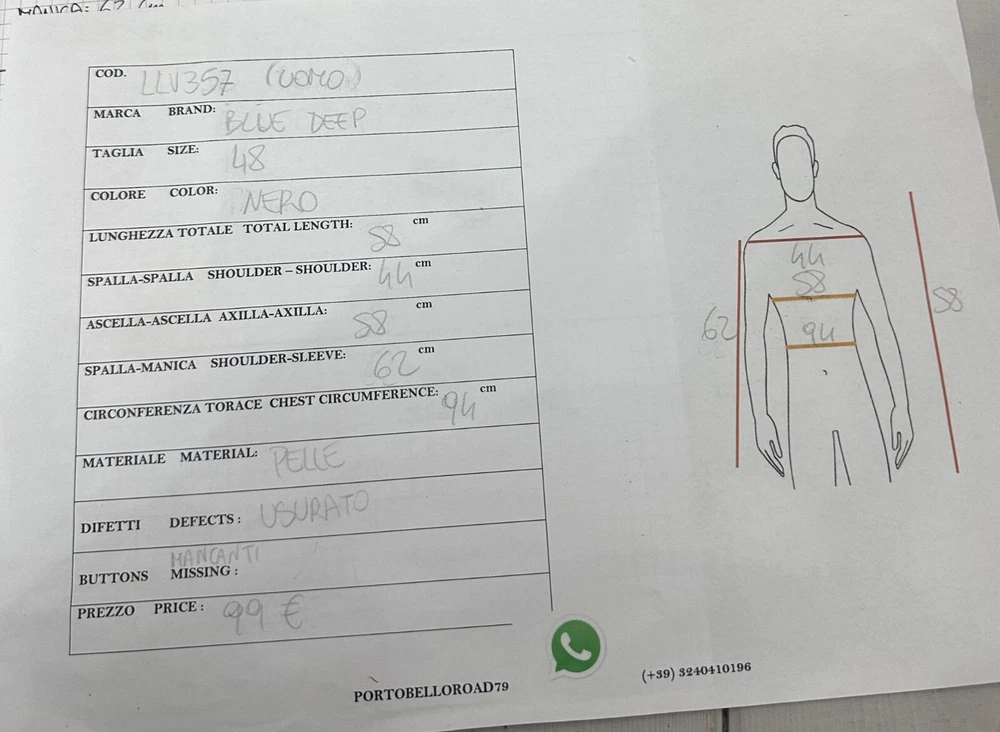 MANICA: 62 cm
COD. LLV357 (UOMO)
MARCA BRAND: BLUE DEEP
TAGLIA SIZE: 48
COLORE COLOR: NERO
LUNGHEZZA TOTALE TOTAL LENGTH: 58 cm
SPALLA-SPALLA SHOULDER – SHOULDER: 44 cm
ASCELLA-ASCELLA AXILLA-AXILLA: 58 cm
SPALLA-MANICA SHOULDER-SLEEVE: 62 cm
CIRCONFERENZA TORACE CHEST CIRCUMFERENCE: 94 cm
MATERIALE MATERIAL: PELLE
DIFETTI DEFECTS: USURATO
MANCANTI
BUTTONS MISSING:
PREZZO PRICE: 99 €
44
58
62
94
58
PORTOBELLOROAD79
(+39) 3240410196